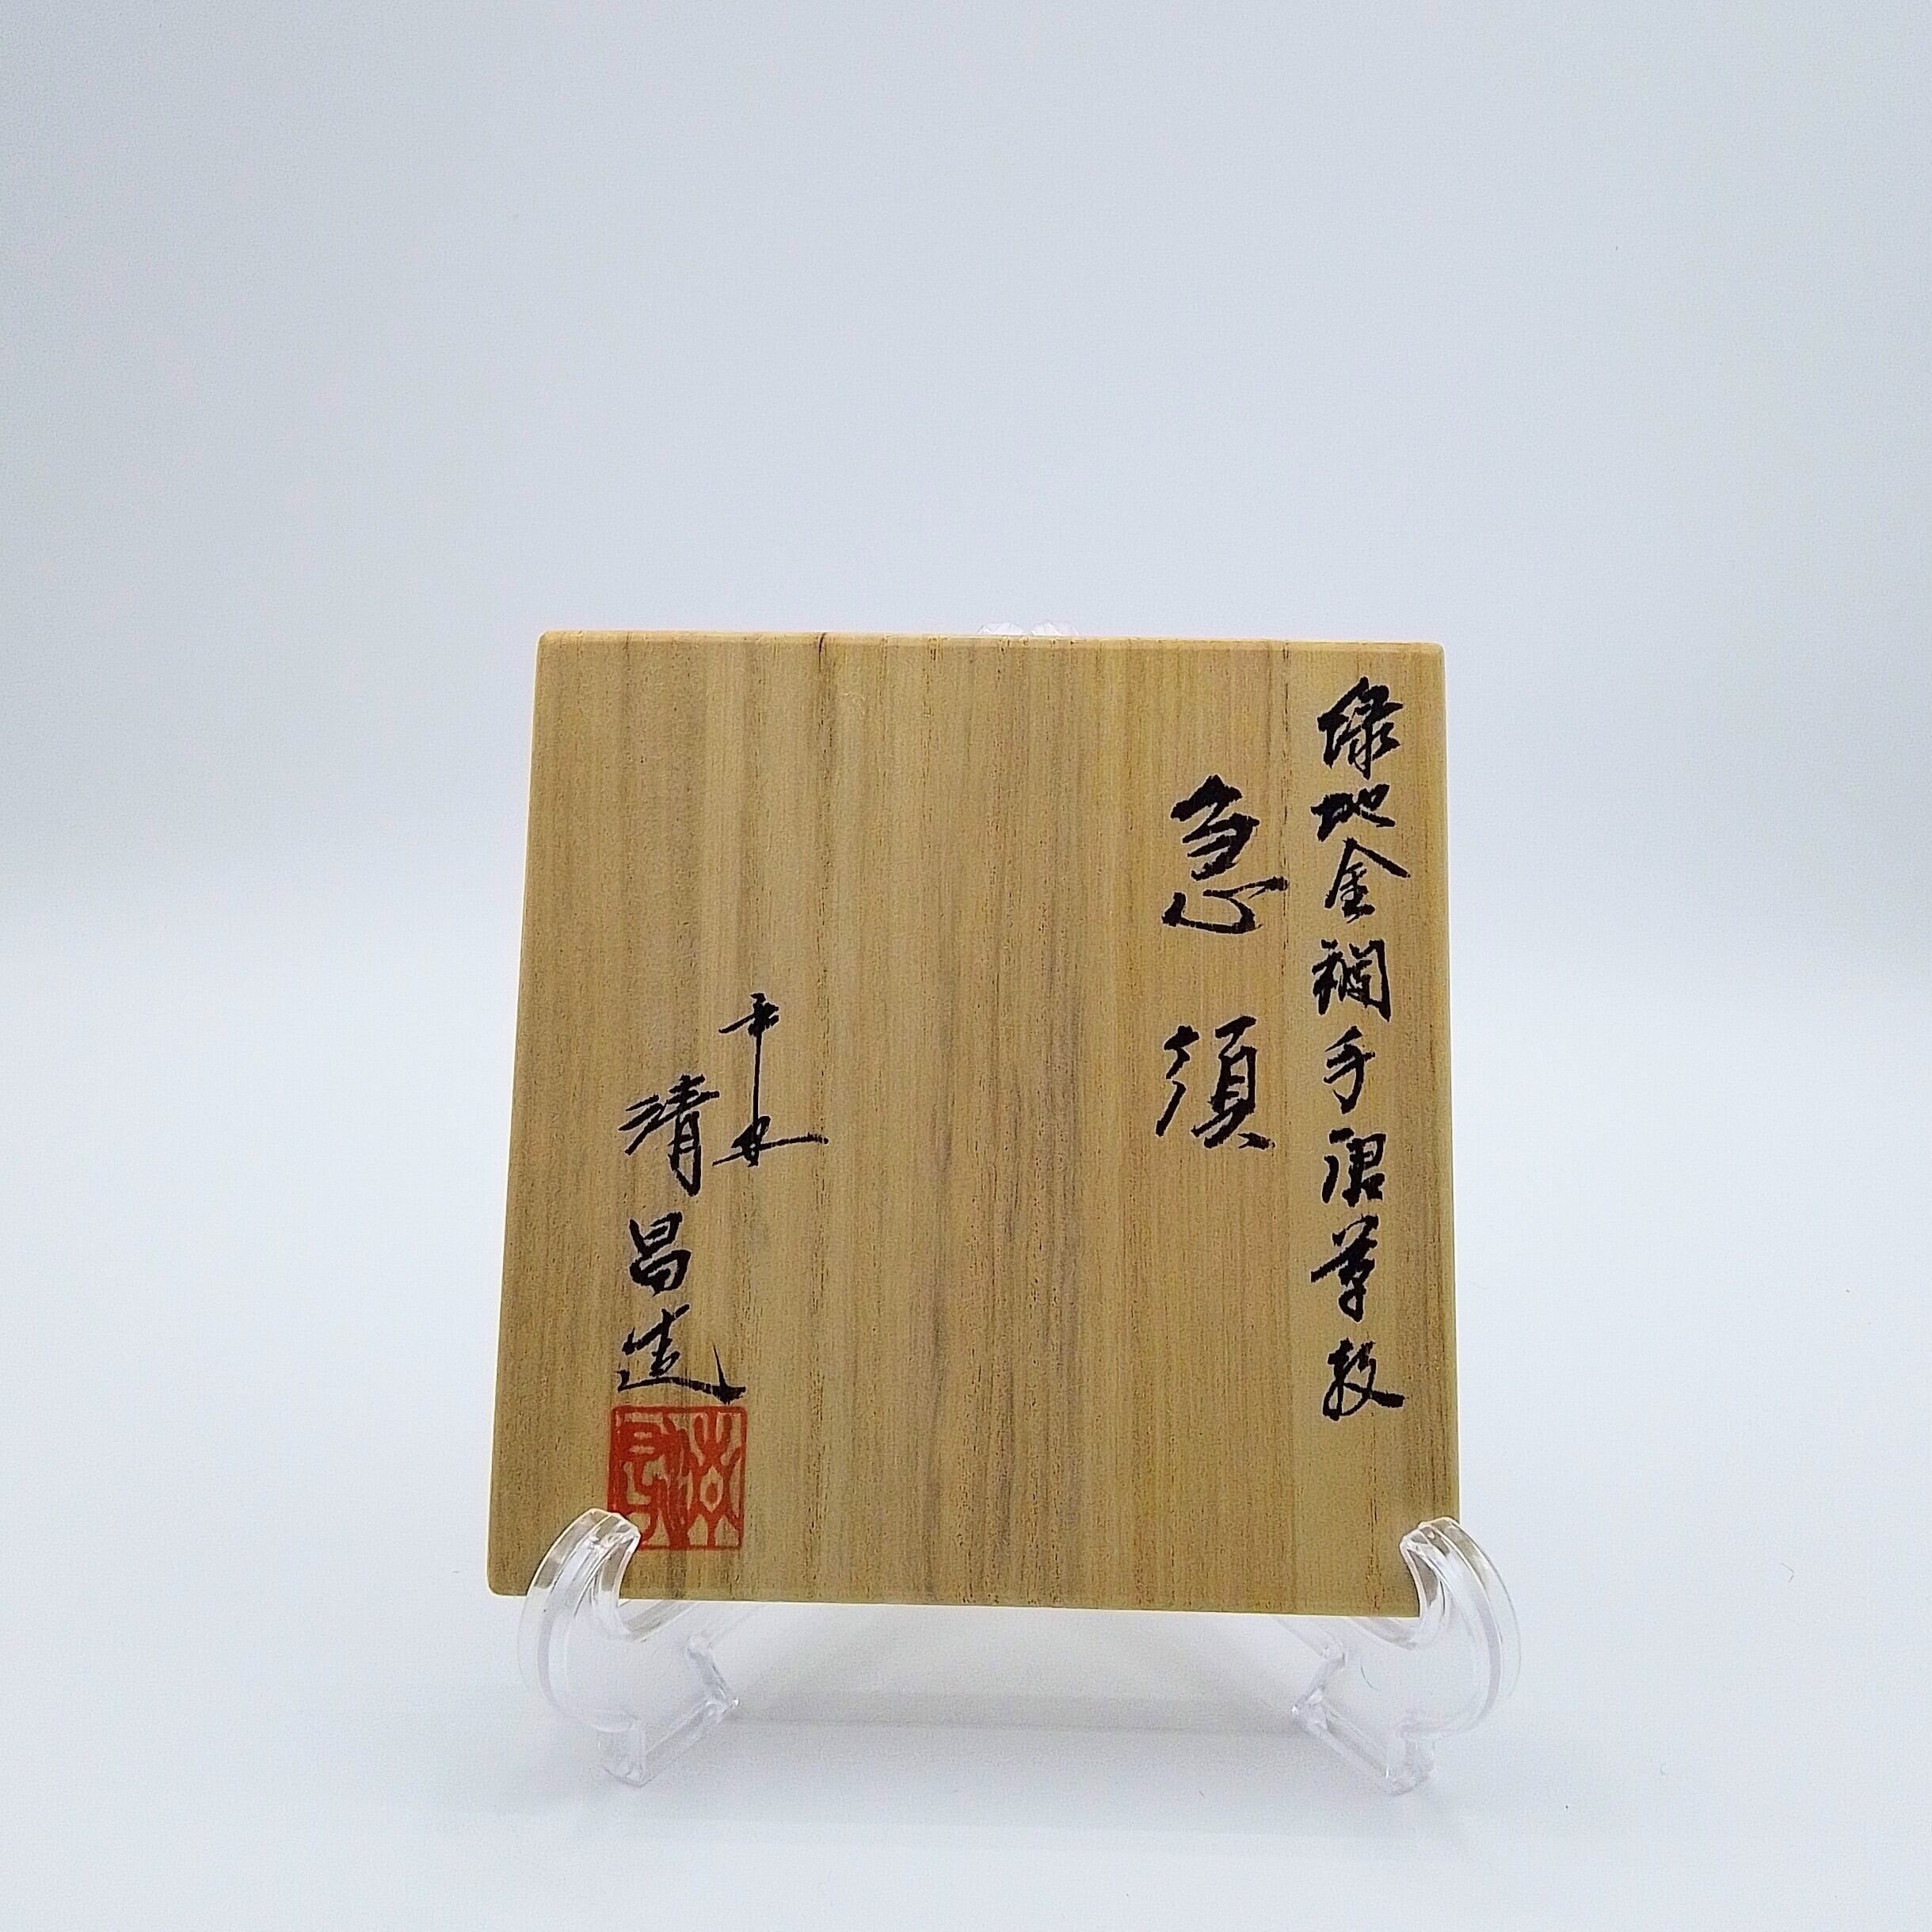 緑地金襴手唐草紋
急須
平安
清昌造